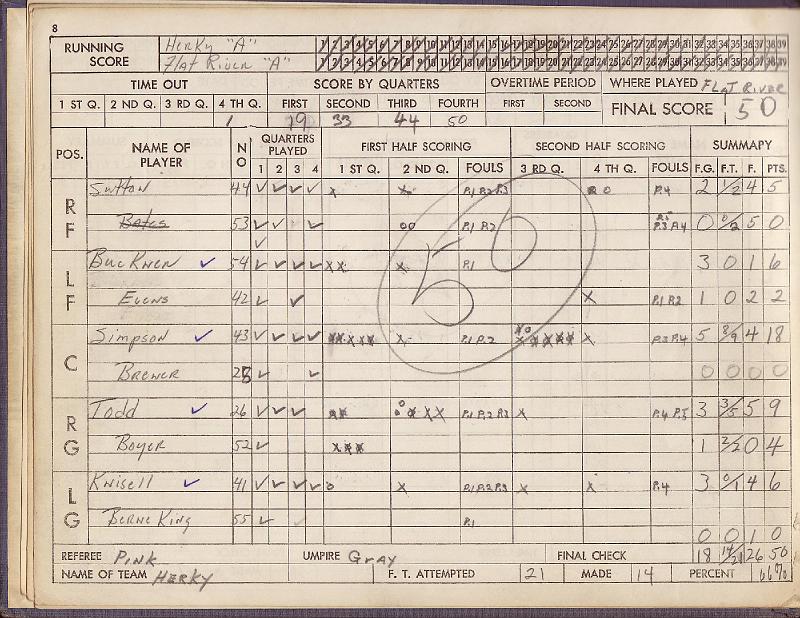 8
RUNNING SCORE Herky "A" 1 2 3 4 5 6 7 8 9 10 11 12 13 14 15 16 17 18 19 20 21 22 23 24 25 26 27 28 29 30 31 32 33 34 35 36 37 38 39
Flat River "A" 1 2 3 4 5 6 7 8 9 10 11 12 13 14 15 16 17 18 19 20 21 22 23 24 25 26 27 28 29 30 31 32 33 34 35 36 37 38 39
TIME OUT SCORE BY QUARTERS OVERTIME PERIOD WHERE PLAYED Flat River
1 ST Q. 2 ND Q. 3 RD Q. 4 TH Q. FIRST SECOND THIRD FOURTH FIRST SECOND FINAL SCORE 50
1 19 33 44 50
POS. NAME OF PLAYER NO QUARTERS PLAYED FIRST HALF SCORING SECOND HALF SCORING SUMMARY
1 2 3 4 1 ST Q. 2 ND Q. FOULS 3 RD Q. 4 TH Q. FOULS F.G. F.T. F. PTS.
RF Sutton 44 ✓ ✓ ✓ ✓ x x P.1 P.2 P.3 O P.4 2 1/2 4 5
Bates 53 ✓ ✓ ✓ oo P.1 P.2 P.5 P.3 P.4 0 0/2 5 0
✓
LF Buckner ✓ 54 ✓ ✓ ✓ ✓ x x x P.1 3 0 1 6
Evens 42 ✓ ✓ x P.1 P.2 1 0 2 2
50
C Simpson ✓ 43 ✓ ✓ ✓ ✓ x x x x x x P.1 P.2 x o x x x x x x P.3 P.4 5 8/9 4 18
Brewer 25 ✓ ✓ 0 0 0 0
RG Todd ✓ 26 ✓ ✓ ✓ x x o o x x x P.1 P.2 P.3 x P.4 P.5 3 3/5 5 9
Boyer 52 ✓ x x x 1 2/2 0 4
LG Knisell ✓ 41 ✓ ✓ ✓ ✓ o x P.1 P.2 P.3 x x P.4 3 0/1 4 6
Berne King 55 ✓ P.1 0 0 1 0
REFEREE Pink UMPIRE Gray FINAL CHECK 18 14/21 26 50
NAME OF TEAM Herky F. T. ATTEMPTED 21 MADE 14 PERCENT 66%